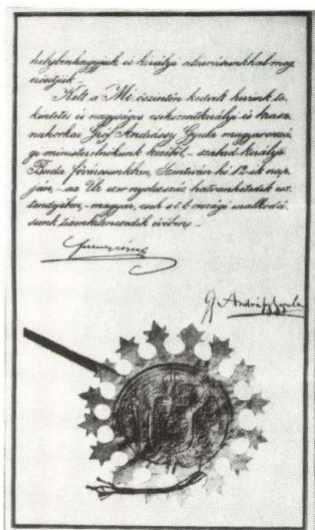 helybenhagyjuk és királyi akaratunkkal meg
erősítjük.
Kelt a Mi őszintén kedvelt hivünk te
kintetes és nagyságos csikszentkirályi és krasz
nahorkai Gróf Andrássy Gyula magyarorszá
gi ministerelnökünk kezéből, – szabad királyi
Buda fővárosunkban, Szentiván hó 12-ik nap
ján, – az Úr ezer nyolczszáz hatvanhetedik esz
tendejében, – magyar, cseh s. t. b. országi uralkodá
sunk évében. –
Gr Andrássy Gyula